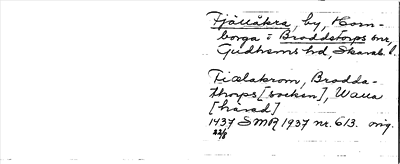 Fjällåkra, by, Horn-
borga i Broddetorps snr,
Gudhems hd, Skarab. l.
Fiælakrom, Brodda-
thorps [socken], Waua
[härad]
1437 SMR 1937 nr. 613. orig.
22/8